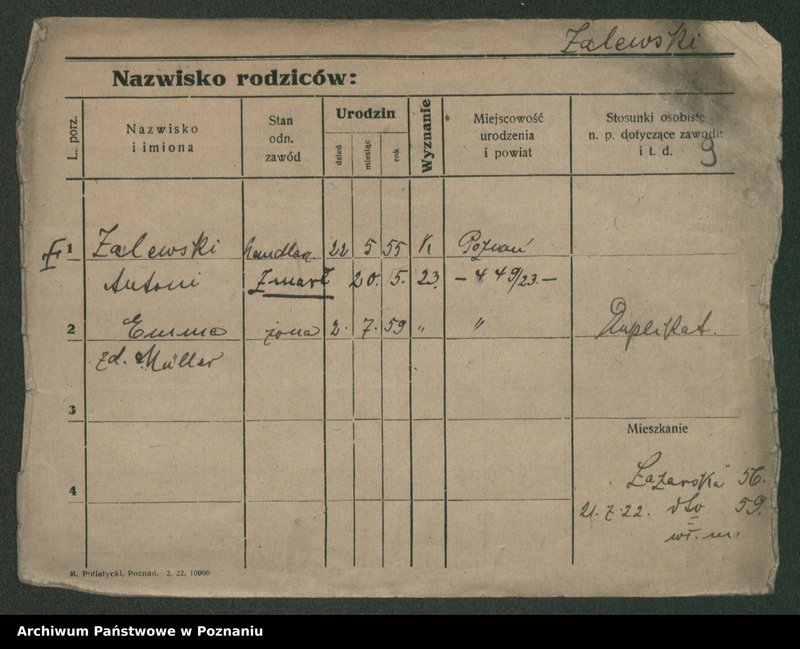 Zalewski
Nazwisko rodziców:
L. porz.
Nazwisko
i imiona
Stan
odn.
zawód
Urodzin
dzień
miesiąc
rok
Wyznanie
Miejscowość
urodzenia
i powiat
Stosunki osobiste
n. p. dotyczące zawodu
i t. d.
9
1 Zalewski handlarz. 22 5 55 K Poznań
Antoni Zmarł 20. 5. 23. – 449/23. –
2 Emma żona 2. 7. 59 „ „ Duplikat.
zd. Müller
3
Mieszkanie
4
Łazarska 56.
21. 7. 22. dto 59.
M. Putiatycki, Poznań. 2. 22. 10000
Archiwum Państwowe w Poznaniu